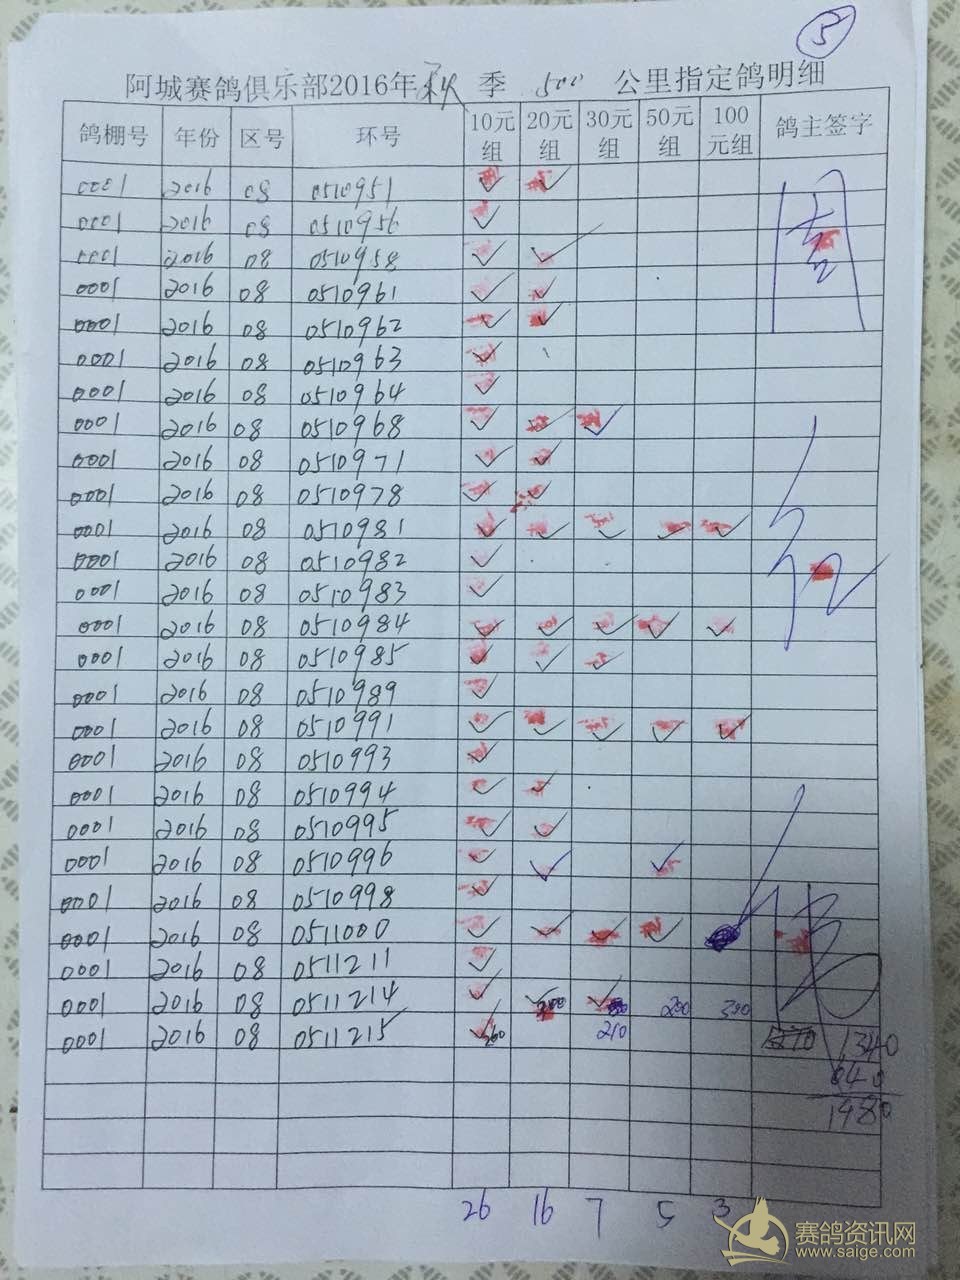 5
阿城赛鸽俱乐部2016年秋季 500 公里指定鸽明细
鸽棚号 年份 区号 环号 10元组 20元组 30元组 50元组 100元组 鸽主签字
0001 2016 08 0510951 ✓ ✓
0001 2016 08 0510956 ✓
0001 2016 08 0510958 ✓ ✓
0001 2016 08 0510961 ✓ ✓
0001 2016 08 0510962 ✓ ✓
0001 2016 08 0510963 ✓
0001 2016 08 0510964 ✓
0001 2016 08 0510968 ✓ ✓ ✓
0001 2016 08 0510971 ✓ ✓
0001 2016 08 0510978 ✓ ✓
0001 2016 08 0510981 ✓ ✓ ✓ ✓ ✓
0001 2016 08 0510982 ✓
0001 2016 08 0510983 ✓
0001 2016 08 0510984 ✓ ✓ ✓ ✓ ✓
0001 2016 08 0510985 ✓ ✓ ✓
0001 2016 08 0510989 ✓
0001 2016 08 0510991 ✓ ✓ ✓ ✓ ✓
0001 2016 08 0510993 ✓
0001 2016 08 0510994 ✓ ✓
0001 2016 08 0510995 ✓ ✓
0001 2016 08 0510996 ✓ ✓ ✓
0001 2016 08 0510998 ✓
0001 2016 08 0511000 ✓ ✓ ✓ ✓
0001 2016 08 0511211 ✓
0001 2016 08 0511214 ✓ ✓ ✓ 300
0001 2016 08 0511215 ✓ 260 210 1340
640
1980
26 16 7 5 3
赛鸽资讯网
www.saige.com